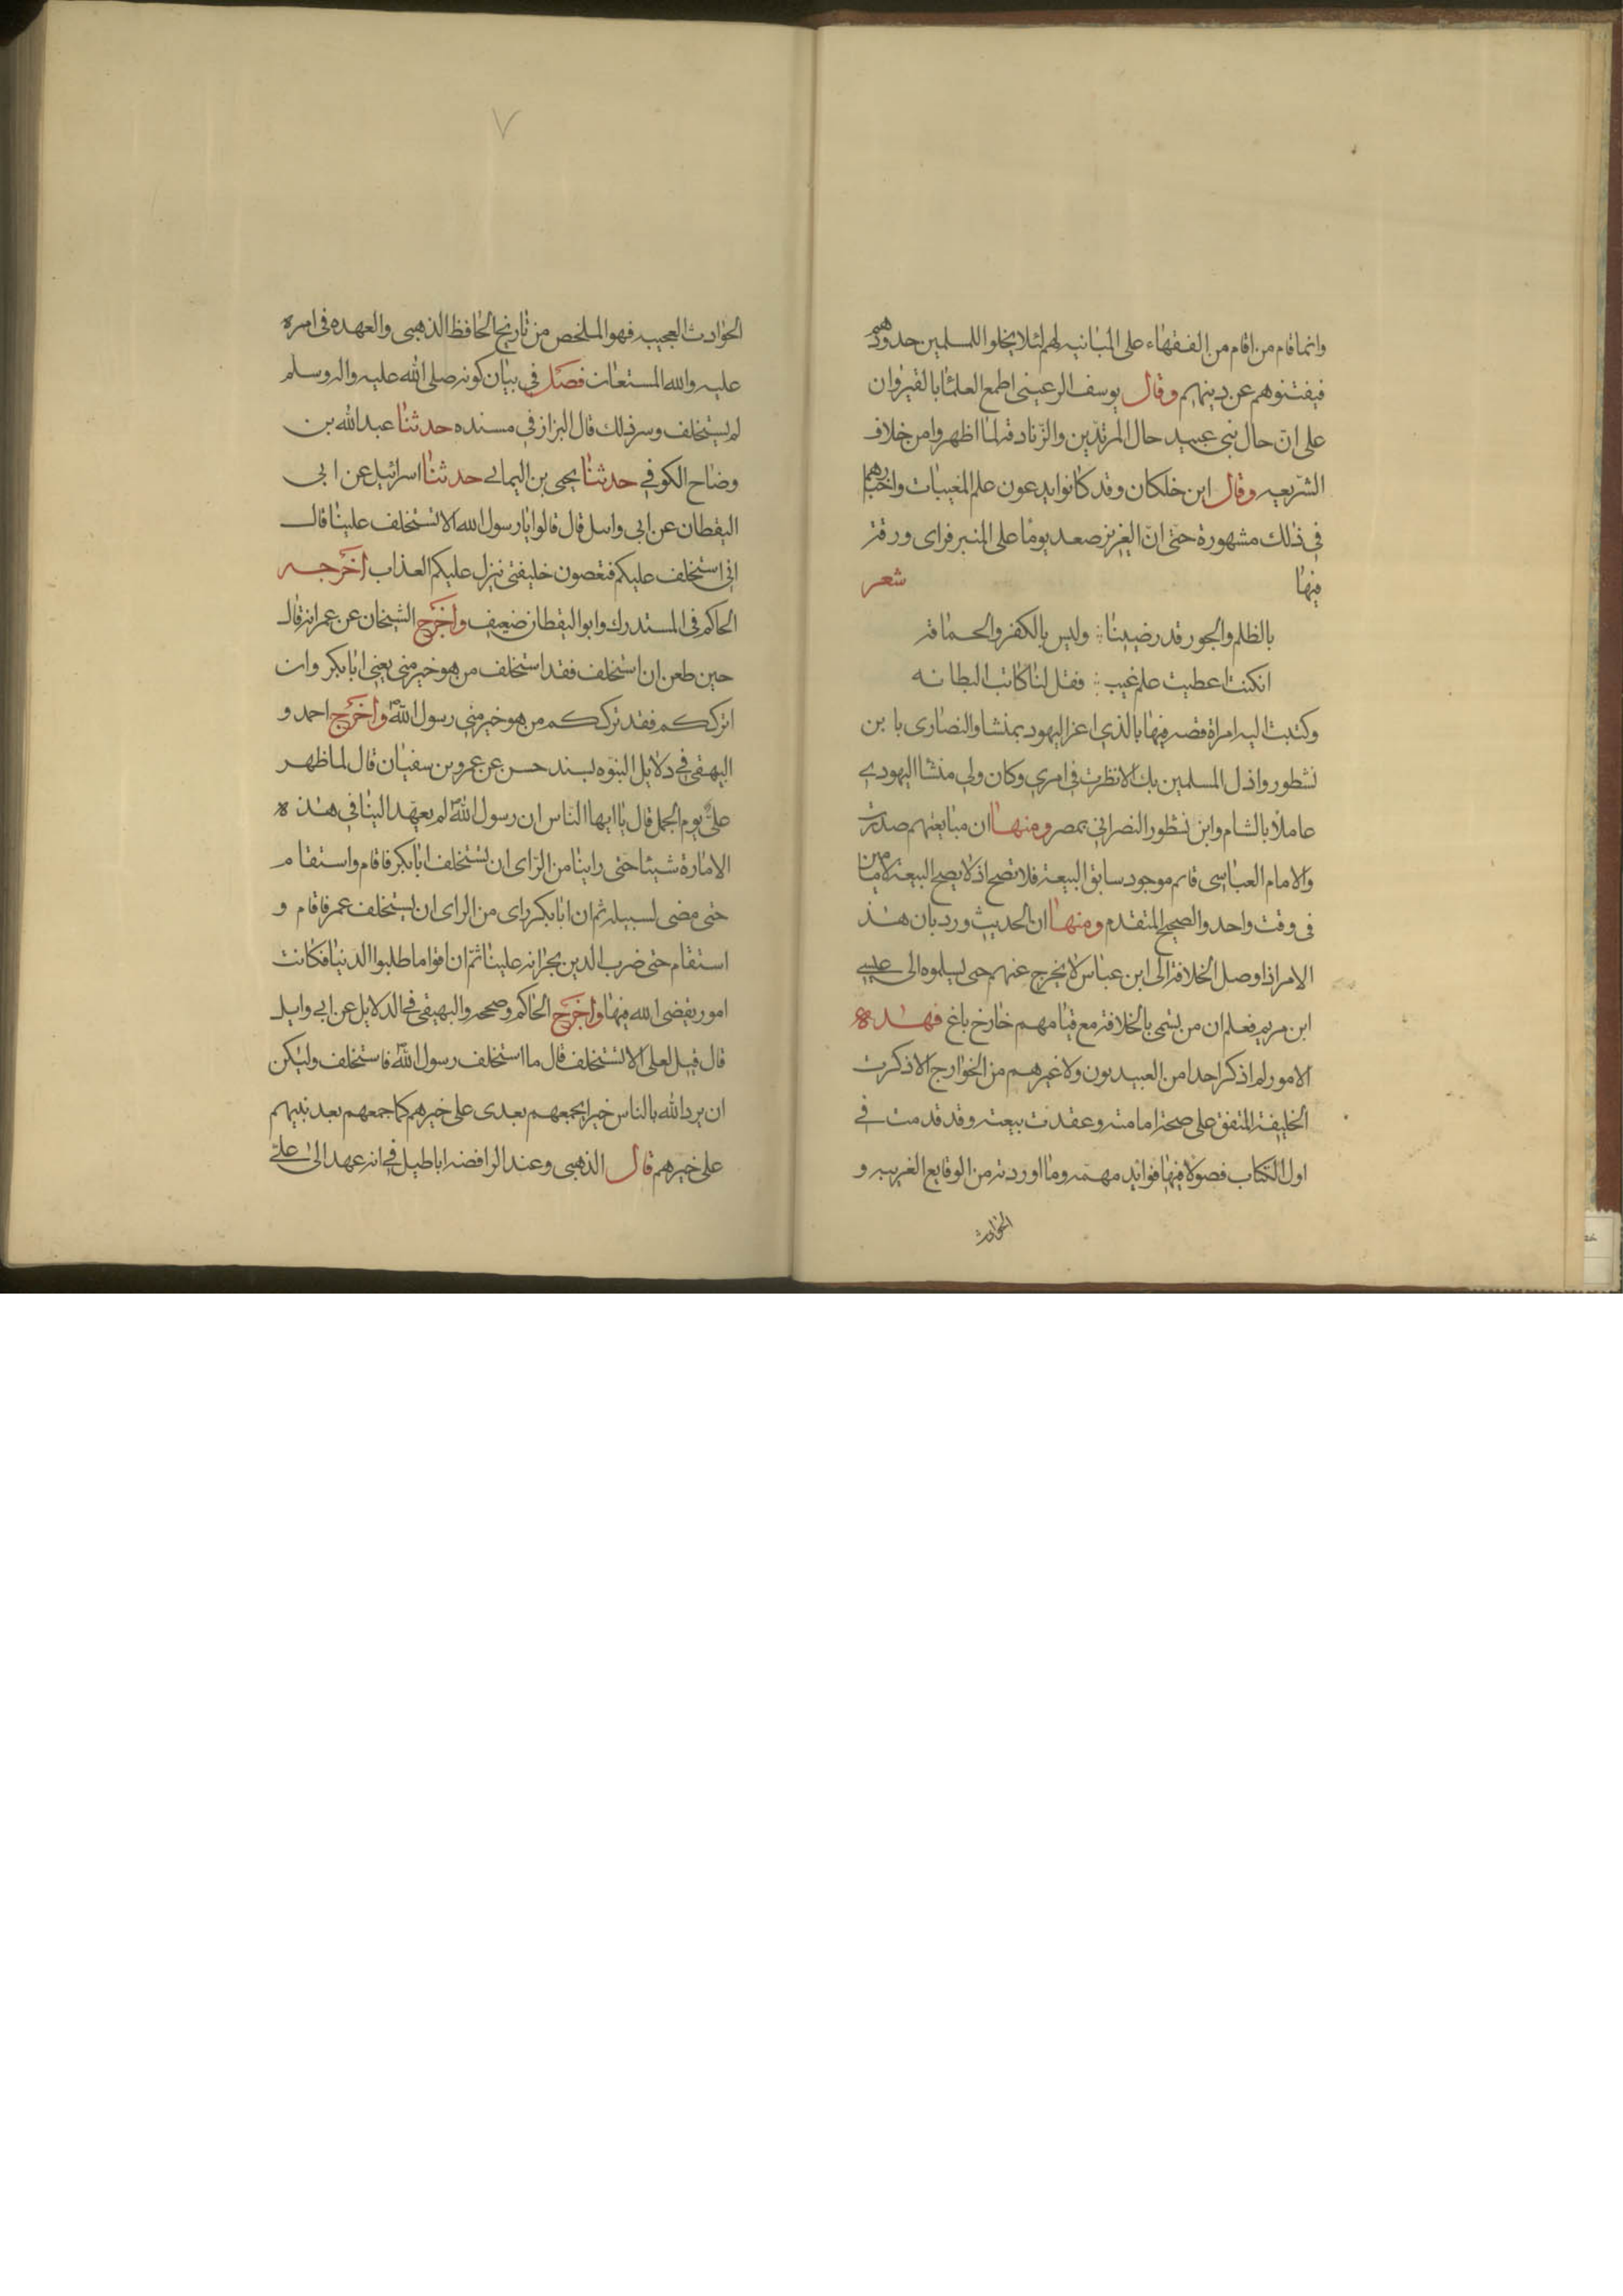 وانما قام من اقام من الفقهاء على المبانيه لهم لئلا يخلوا للمسلمين حدودهم
فيفتنوهم عن دينهم وقال يوسف الرعيني اطمع العلماء بالقيروان
على ان حال بني عبيد حال المرتدين والزنادقة لما اظهروا من خلاف
الشريعه وقال ابن خلكان وقد كانوا يدعون علم المغيبات واخبارهم
في ذلك مشهورة حتى ان العزيز صعد يوما على المنبر فراى ورقة
فيها شعر
بالظلم والجور قد رضينا ؛ وليس بالكفر والحماقة
انكنت اعطيت علم غيب ؛ فقل لنا كاتب البطانه
وكتبت اليه امراة قصه فيها بالذي اعز اليهود بمنشا والنصارى بابن
نشطور واذل المسلمين بك الا نظرت في امري وكان ولي منشا اليهودي
عاملا بالشام وابن نشطور النصراني بمصر ومنها ان مبايعتهم صدرت
والامام العباسي قائم موجود سابق البيعة فلا تصح اذ لا يصح البيعة لامامين
في وقت واحد والصحيح المتقدم ومنها ان الحديث ورد بان هذ
الامر اذا وصل الخلافة الى ابن عباس لا يخرج عنهم حتى يسلموه الى عيسى
ابن مريم فعلم ان من يتسمى بالخلافة مع قيامهم خارج باغ فهذه
الامور لم اذكر احدا من العبيديون ولا غيرهم من الخوارج الا ذكرت
الخليفة المتفق على صحة امامته وعقدت بيعته وقد قدمت في
اول الكتاب فصولا فيها فوائد مهمه وما اوردته من الوقايع الغريبه و
الحوادث
٧
الحوادث العجيبه فهو الملخص من تاريخ الحافظ الذهبي والعهده في امره
عليه والله المستعان فصل في بيان كونه صلى الله عليه واله وسلم
لم يستخلف وسر ذلك قال البزاز في مسنده حدثنا عبد الله بن
وضاح الكوفي حدثنا يحيى بن اليماني حدثنا اسرائيل عن ابي
اليقطان عن ابي وايل قال قالوا يا رسول الله الا تستخلف علينا قال
اني استخلف عليكم فتعصون خليفتي نيزل عليكم العذاب اخرجه
الحاكم في المستدرك وابو اليقطان ضعيف واخرج الشيخان عن عمر انه قال
حين طعن ان استخلف فقد استخلف من هو خير مني يعني ابا بكر وان
اترككم فقد ترككم من هو خير مني رسول الله واخرج احمد و
البيهقي في دلايل النبوه بسند حسن عن عمرو بن سفيان قال لما ظهر
علي يوم الجمل قال يا ايها الناس ان رسول الله لم يعهد الينا في هذه
الامارة شيئا حتى راينا من الراى ان نستخلف ابا بكر فاقام واستقام
حتى مضى لسبيله ثم ان ابا بكر راى من الراى ان يستخلف عمر فاقام و
استقام حتى ضرب الدين بجرانه علينا ثم ان اقواما طلبوا الدنيا فكانت
امور يقضى الله فيها واخرج الحاكم وصححه والبهيقي في الدلايل عن ابي وايل
قال قيل لعلي الا تستخلف قال ما استخلف رسول الله فاستخلف وليكن
ان يرد الله بالناس خيرا يجمعهم بعدى على خيرهم كما جمعهم بعد نبيهم
على خيرهم قال الذهبي وعند الرافضه اباطيل في انه عهد الى علي